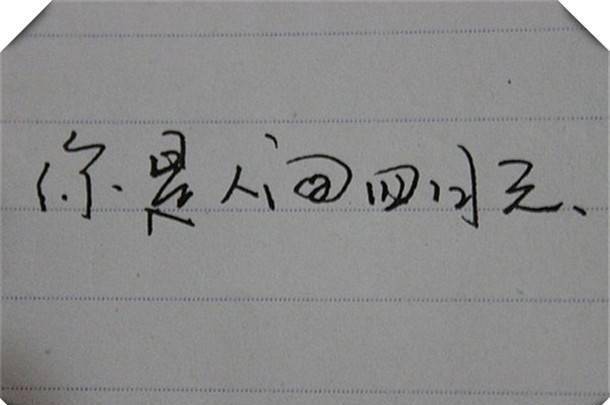 你是人间四月天、